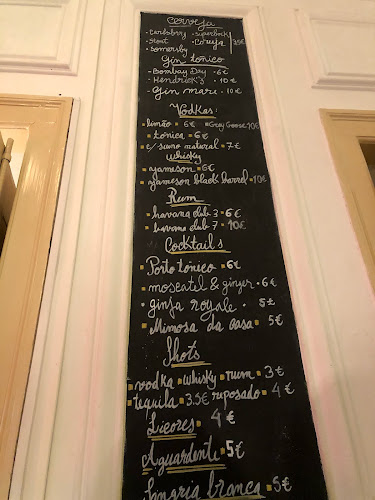 Cerveja
-Carlsberg -Superbock
-Stout -Coruja 3.5€
-Somersby
Gin tónico
-Bombay Dry · 6€
-Hendrick's · 10€
-Gin mare · 10€
Vodkas:
limão 6€ Grey Goose 10€
tónica 6€
c/ sumo natural 7€
Whisky
Jameson 6€
Jameson black barrel 10€
Rum
havana club 3 6€
havana club 7 10€
Cocktails
Porto tónico 6€
moscatel & ginger 6€
ginja royale 5€
Mimosa da casa 5€
Shots
vodka whisky rum 3€
tequila 3.5€ reposado 4€
Licores 4€
Aguardente 5€
Sangria branca 5€